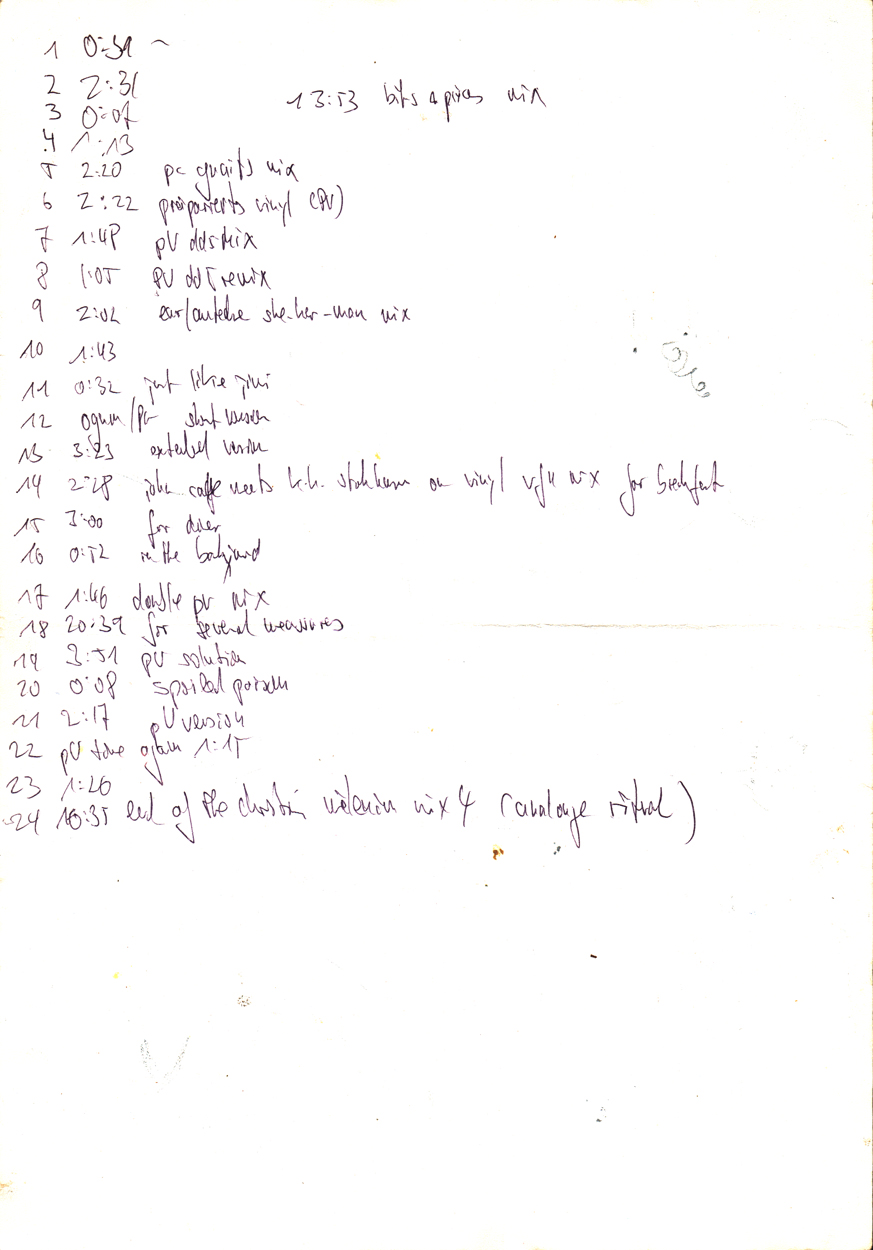 1 0:31
2 2:31
13:53 bits & pieces mix
3 0:07
4 1:13
5 2:20 pc mix
6 2:22 vinyl (PV)
7 1:48 pV mix
8 1:05 PV remix
9 2:02 she-her-man mix
10 1:43
11 0:32 just like jimi
12 ogum/PV short version
13 3:23 extended version
14 2:28 john cage meets k.h. stockhausen on vinyl mix for breakfast
15 3:00 for diner
16 0:52 in the backyard
17 1:46 double pv mix
18 20:39 for several measures
19 3:51 pV solution
20 0:08 spoiled
21 2:17 pV version
22 pV 1:15
23 1:26
24 16:35 end of the mix 4 (analouge ritual)